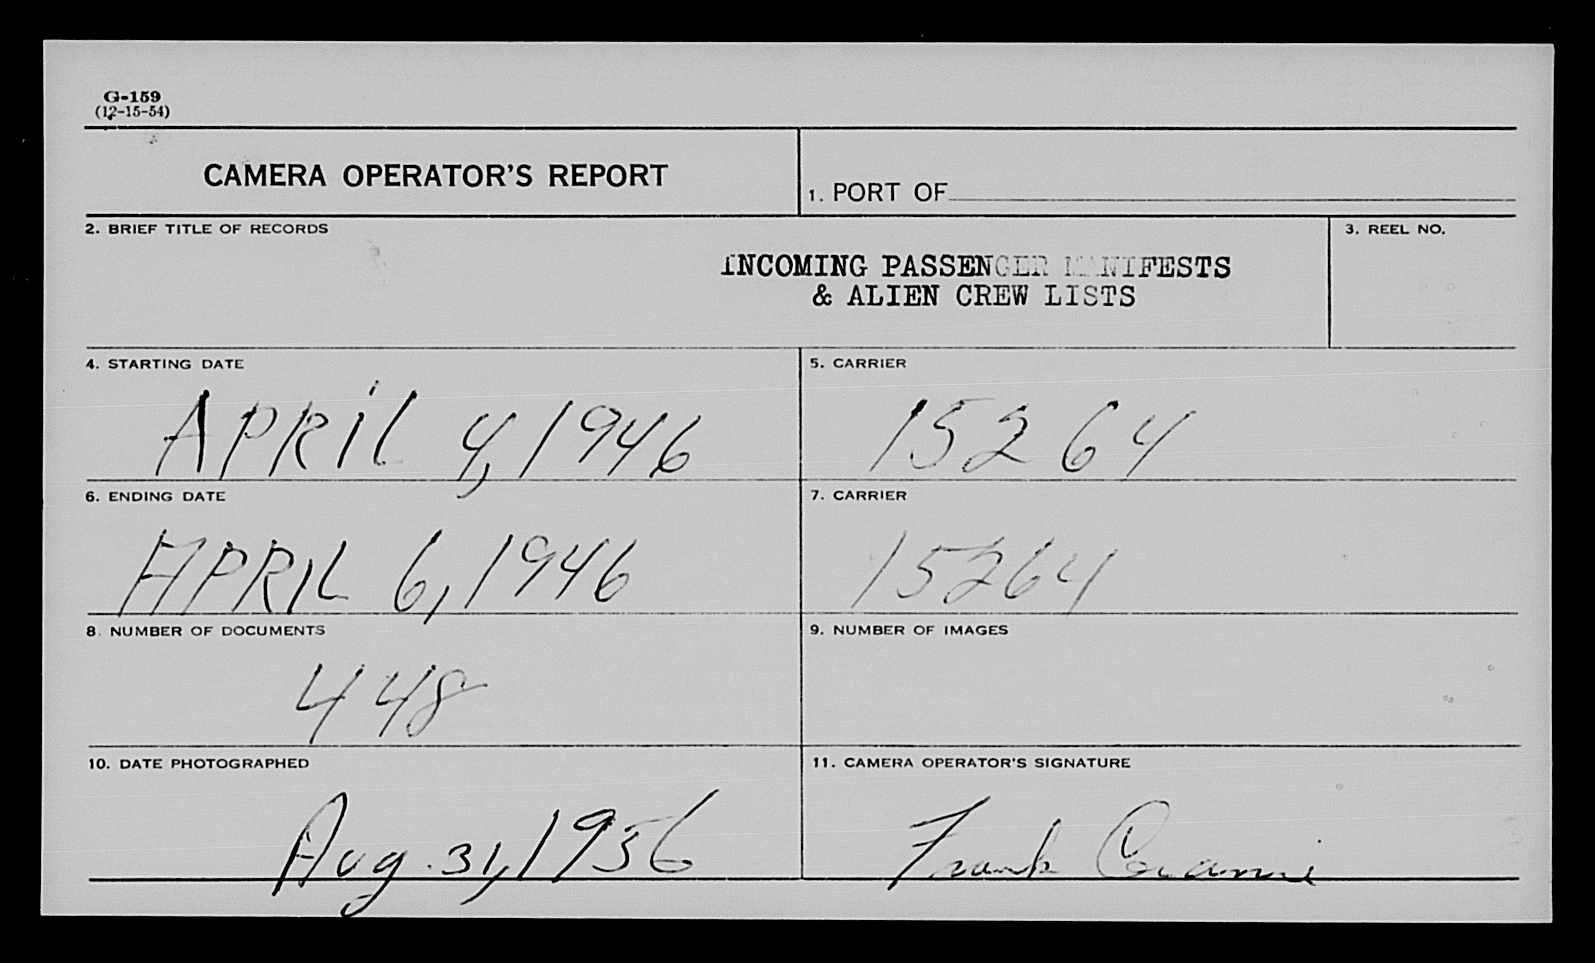 G-159
(12-15-54)
CAMERA OPERATOR'S REPORT
1. PORT OF
2. BRIEF TITLE OF RECORDS
3. REEL NO.
INCOMING PASSENGER MANIFESTS
& ALIEN CREW LISTS
4. STARTING DATE
5. CARRIER
APRIL 4, 1946
15264
6. ENDING DATE
7. CARRIER
APRIL 6, 1946
15264
8. NUMBER OF DOCUMENTS
9. NUMBER OF IMAGES
448
10. DATE PHOTOGRAPHED
11. CAMERA OPERATOR'S SIGNATURE
Aug. 31, 1956
Frank